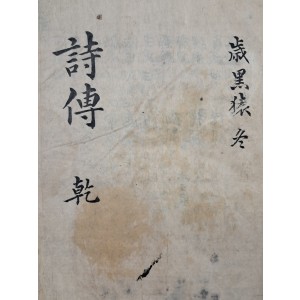 歲黑猿冬
詩傳 乾